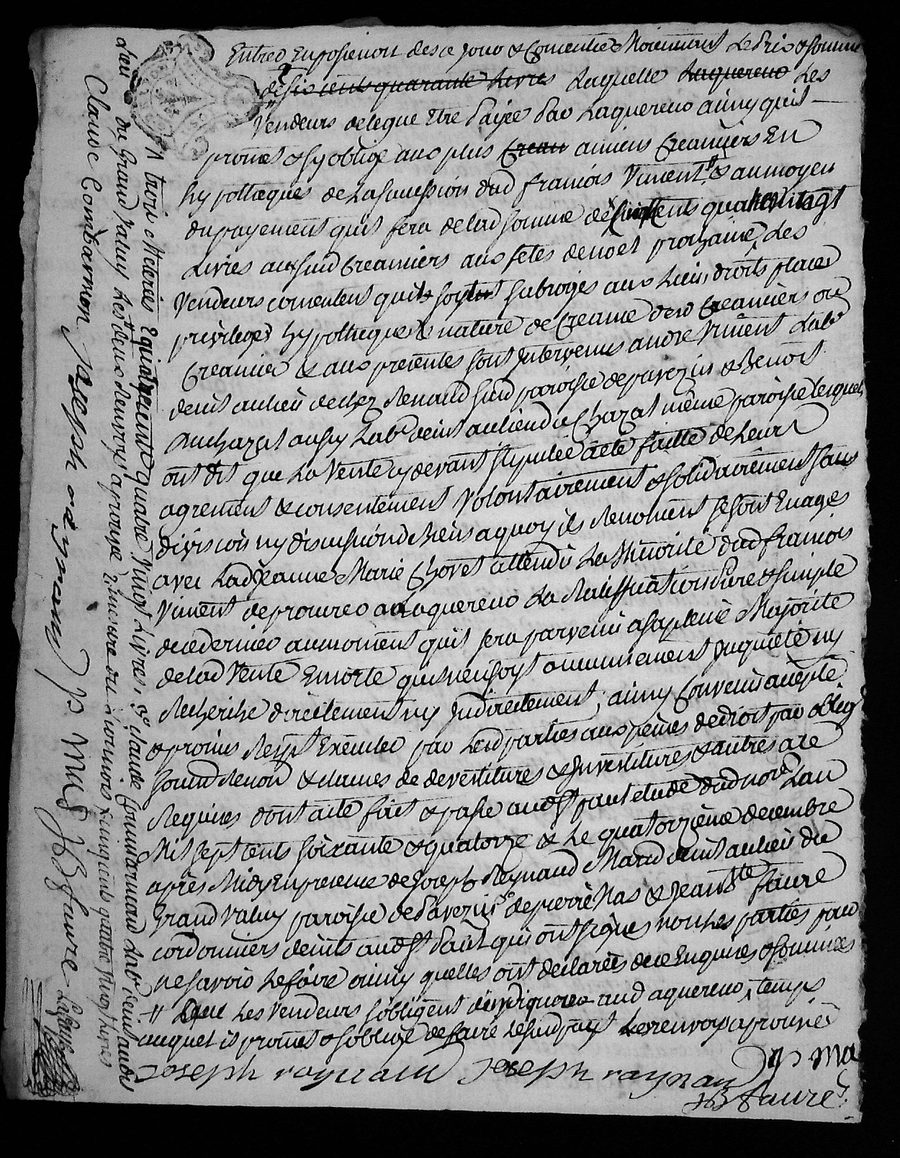 Entrer En possession des ce jour & Convenue Moiennant Le Prix & somme
de six cents quarante Livres Laquelle Laquereur Les
Vendeurs delegue Etre Paÿée Par Laquereur ainsy quil
promet & sy oblige aux plus Crean anciens Creanciers En
hypotheques de La succession dud françois Vincent, & au moyen
du payement quil fera de lad somme de cents quatre vingt
Livres auxsusd Creanciers aux fêtes de noel prochaine, Les
Vendeurs consentent quil soyent subrogés aux Lieu, droits, place
privilege, hypotheques & nature de Creance desd Creanciers ou
Creancier & aux presentes sont Intervenus andré Vincent Labr
demt au lieu de chez Renaud susd paroisse de pavezin & Benoit
Duchazat aussy Labr demt au lieu du Chazat même paroisse Lesquels
ont dit que La Vente cy devant stipulée a été faitte de Leurs
agrement & consentement Volontairement & solidairement sans
division ny discussion de biens a quoy ils Renoncent se sont Engagés
avec Lad Jeanne Marie Chovet attendu La Minorité dud françois
Vincent de procurer a Laquereur La Ratiffication Pure & simple
de ce dernier au moment quil sera parvenu a sa pleine Majorité
de lad Vente En sorte quil nen soyt aucunement Inquieté ny
Recherché directement ny Indirectement, ainsy Convenu accepté
& promis Respt Executer par Lesd parties aux peines de droit par oblig
soumd Renond & clauses de devestitures & Investitures & autres a ce
Requises dont acte fait & passé aud st paul etude dud nore Lan
Mil sept cents soixante & quatorze & Le quatorzième decembre
après Midy En presence de Joseph Reynaud Mard demt au lieu du
Grand Valuy paroisse de Pavezin, de pierre Mas & Jean Bte faure
cordonniers demts aud st Paul qui ont signé, non Les parties pour
ne savoir Le faire ainsy quelles ont déclarées de ce Enquises & sommées
// que Les Vendeurs sobligent dindiquer aud aquereur, temps
auquel il promet & soblige de faire Lesusd payt Le renvoy aprouvé
Joseph raynaud Joseph raynaud p ma
JB faure
// trois Meteries Equivalent quatre vingt Livres. Sr claude Combarmon Labr demt aud
Lieu du Grand Valuy Les deux Renvoys aprouvé
Claude Combarmon Joseph raynaud p mas JB faure